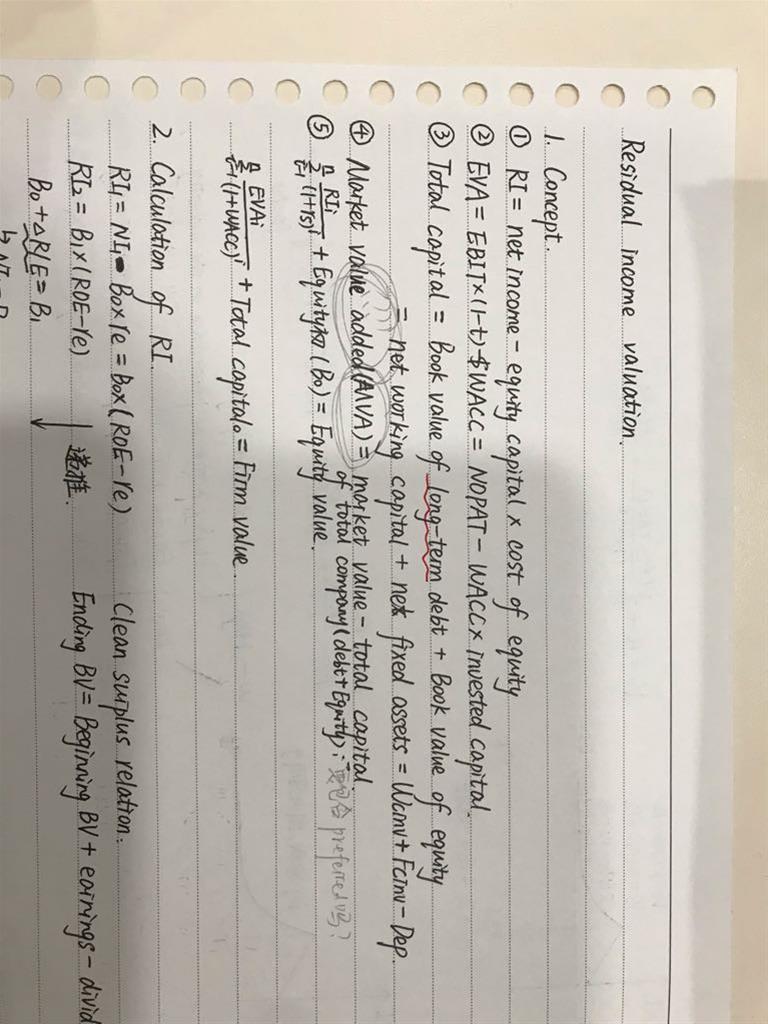 Residual income valuation.
1. Concept.
① RI = net income - equity capital × cost of equity
② EVA = EBIT×(1-t)-$WACC = NOPAT - WACC× invested capital.
③ Total capital = Book value of long-term debt + Book value of equity
= net working capital + net fixed assets = WCinv + FCinv - Dep.
④ Market value added (MVA) = market value - total capital.
of total company (debt + Equity);
preferred
⑤ n Σ t=1 RIi/(1+rs)^i + Equity (B₀) = Equity value.
n Σ t=1 EVAi/(1+WACC)^i + Total capital₀ = Firm value.
2. Calculation of RI.
RI₁ = NI₁ - B₀×re = B₀×(ROE-re) Clean surplus relation.
RI₂ = B₁×(ROE-re) 递推. Ending BV = Beginning BV + earnings - divid
B₀ + △R/E = B₁ ↓